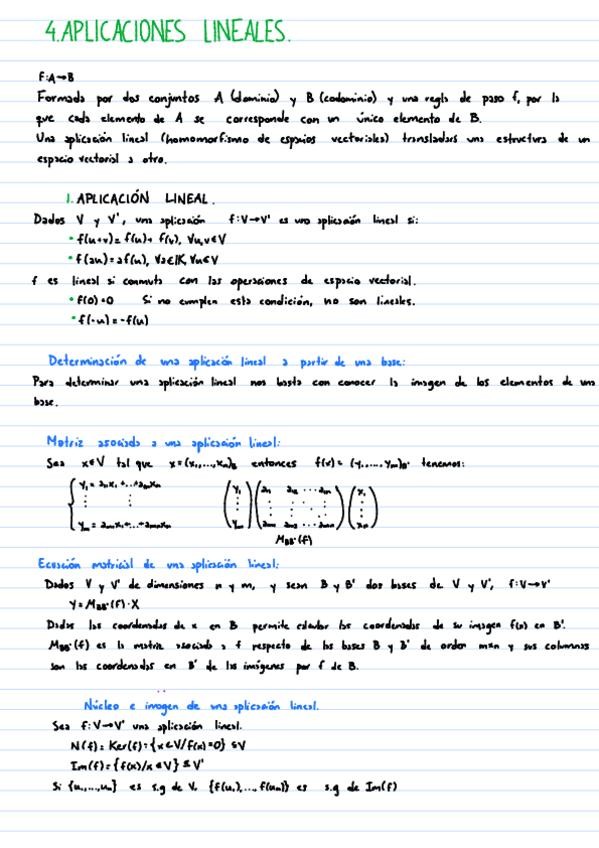 4. APLICACIONES LINEALES.
f: A→B
Formada por dos conjuntos A (dominio) y B (codominio) y una regla de paso f, por la
que cada elemento de A se corresponde con un único elemento de B.
Una aplicación lineal (homomorfismo de espacios vectoriales) trasladará una estructura de un
espacio vectorial a otro.
1. APLICACIÓN LINEAL.
Dados V y V', una aplicación f: V→V' es una aplicación lineal si:
• f(u+v) = f(u) + f(v), ∀u,v∈V
• f(au) = af(u), ∀a∈K, ∀u∈V
f es lineal si conmuta con las operaciones de espacio vectorial.
• f(0) = 0 Si no cumplen esta condición, no son lineales.
• f(-u) = -f(u)
Determinación de una aplicación lineal a partir de una base:
Para determinar una aplicación lineal nos basta con conocer la imagen de los elementos de una
base.
Matriz asociada a una aplicación lineal:
Sea x∈V tal que x=(x₁,...,xₙ)_B entonces f(x) = (y₁,...,yₘ)_B' tenemos:
{ y₁ = a₁₁x₁ + ... + a₁ₙxₙ (y₁) (a₁₁ a₁₂ ... a₁ₙ) (x₁)
⋮ ⋮ ⋮ ⋮ ⋮
yₘ = aₘ₁x₁ + ... + aₘₙxₙ (yₘ) (aₘ₁ aₘ₂ ... aₘₙ) (xₙ)
M_BB'(f)
Ecuación matricial de una aplicación lineal:
Dados V y V' de dimensiones n y m, y sean B y B' dos bases de V y V', f: V→V'
Y = M_BB'(f)·X
Dadas las coordenadas de x en B permite calcular las coordenadas de su imagen f(x) en B'.
M_BB'(f) es la matriz asociada a f respecto de las bases B y B' de orden m×n y sus columnas
son las coordenadas en B' de las imágenes por f de B.
Núcleo e imagen de una aplicación lineal.
Sea f: V→V' una aplicación lineal.
N(f) = Ker(f) = {x∈V/f(x)=0} ≤ V
Im(f) = {f(x)/x∈V} ≤ V'
Si {u₁,...,uₙ} es s.g de V, {f(u₁),...,f(uₙ)} es s.g de Im(f)